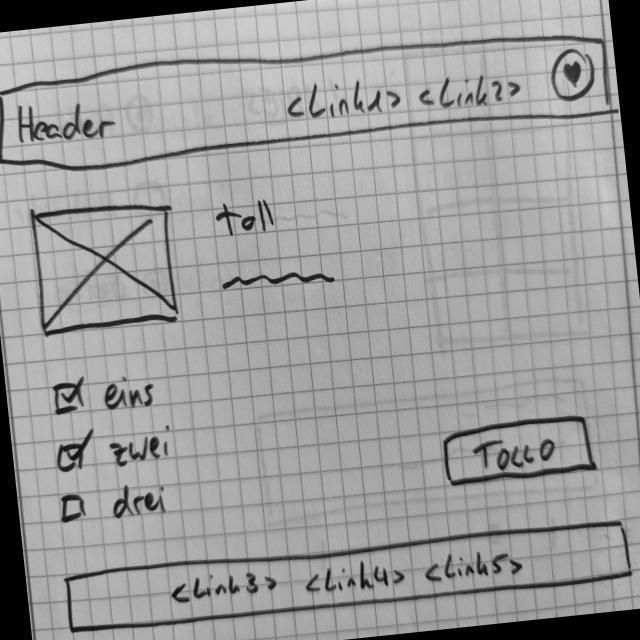 Header <Link1> <Link2>
toll
eins
zwei
drei
<Link3> <Link4> <Link5>